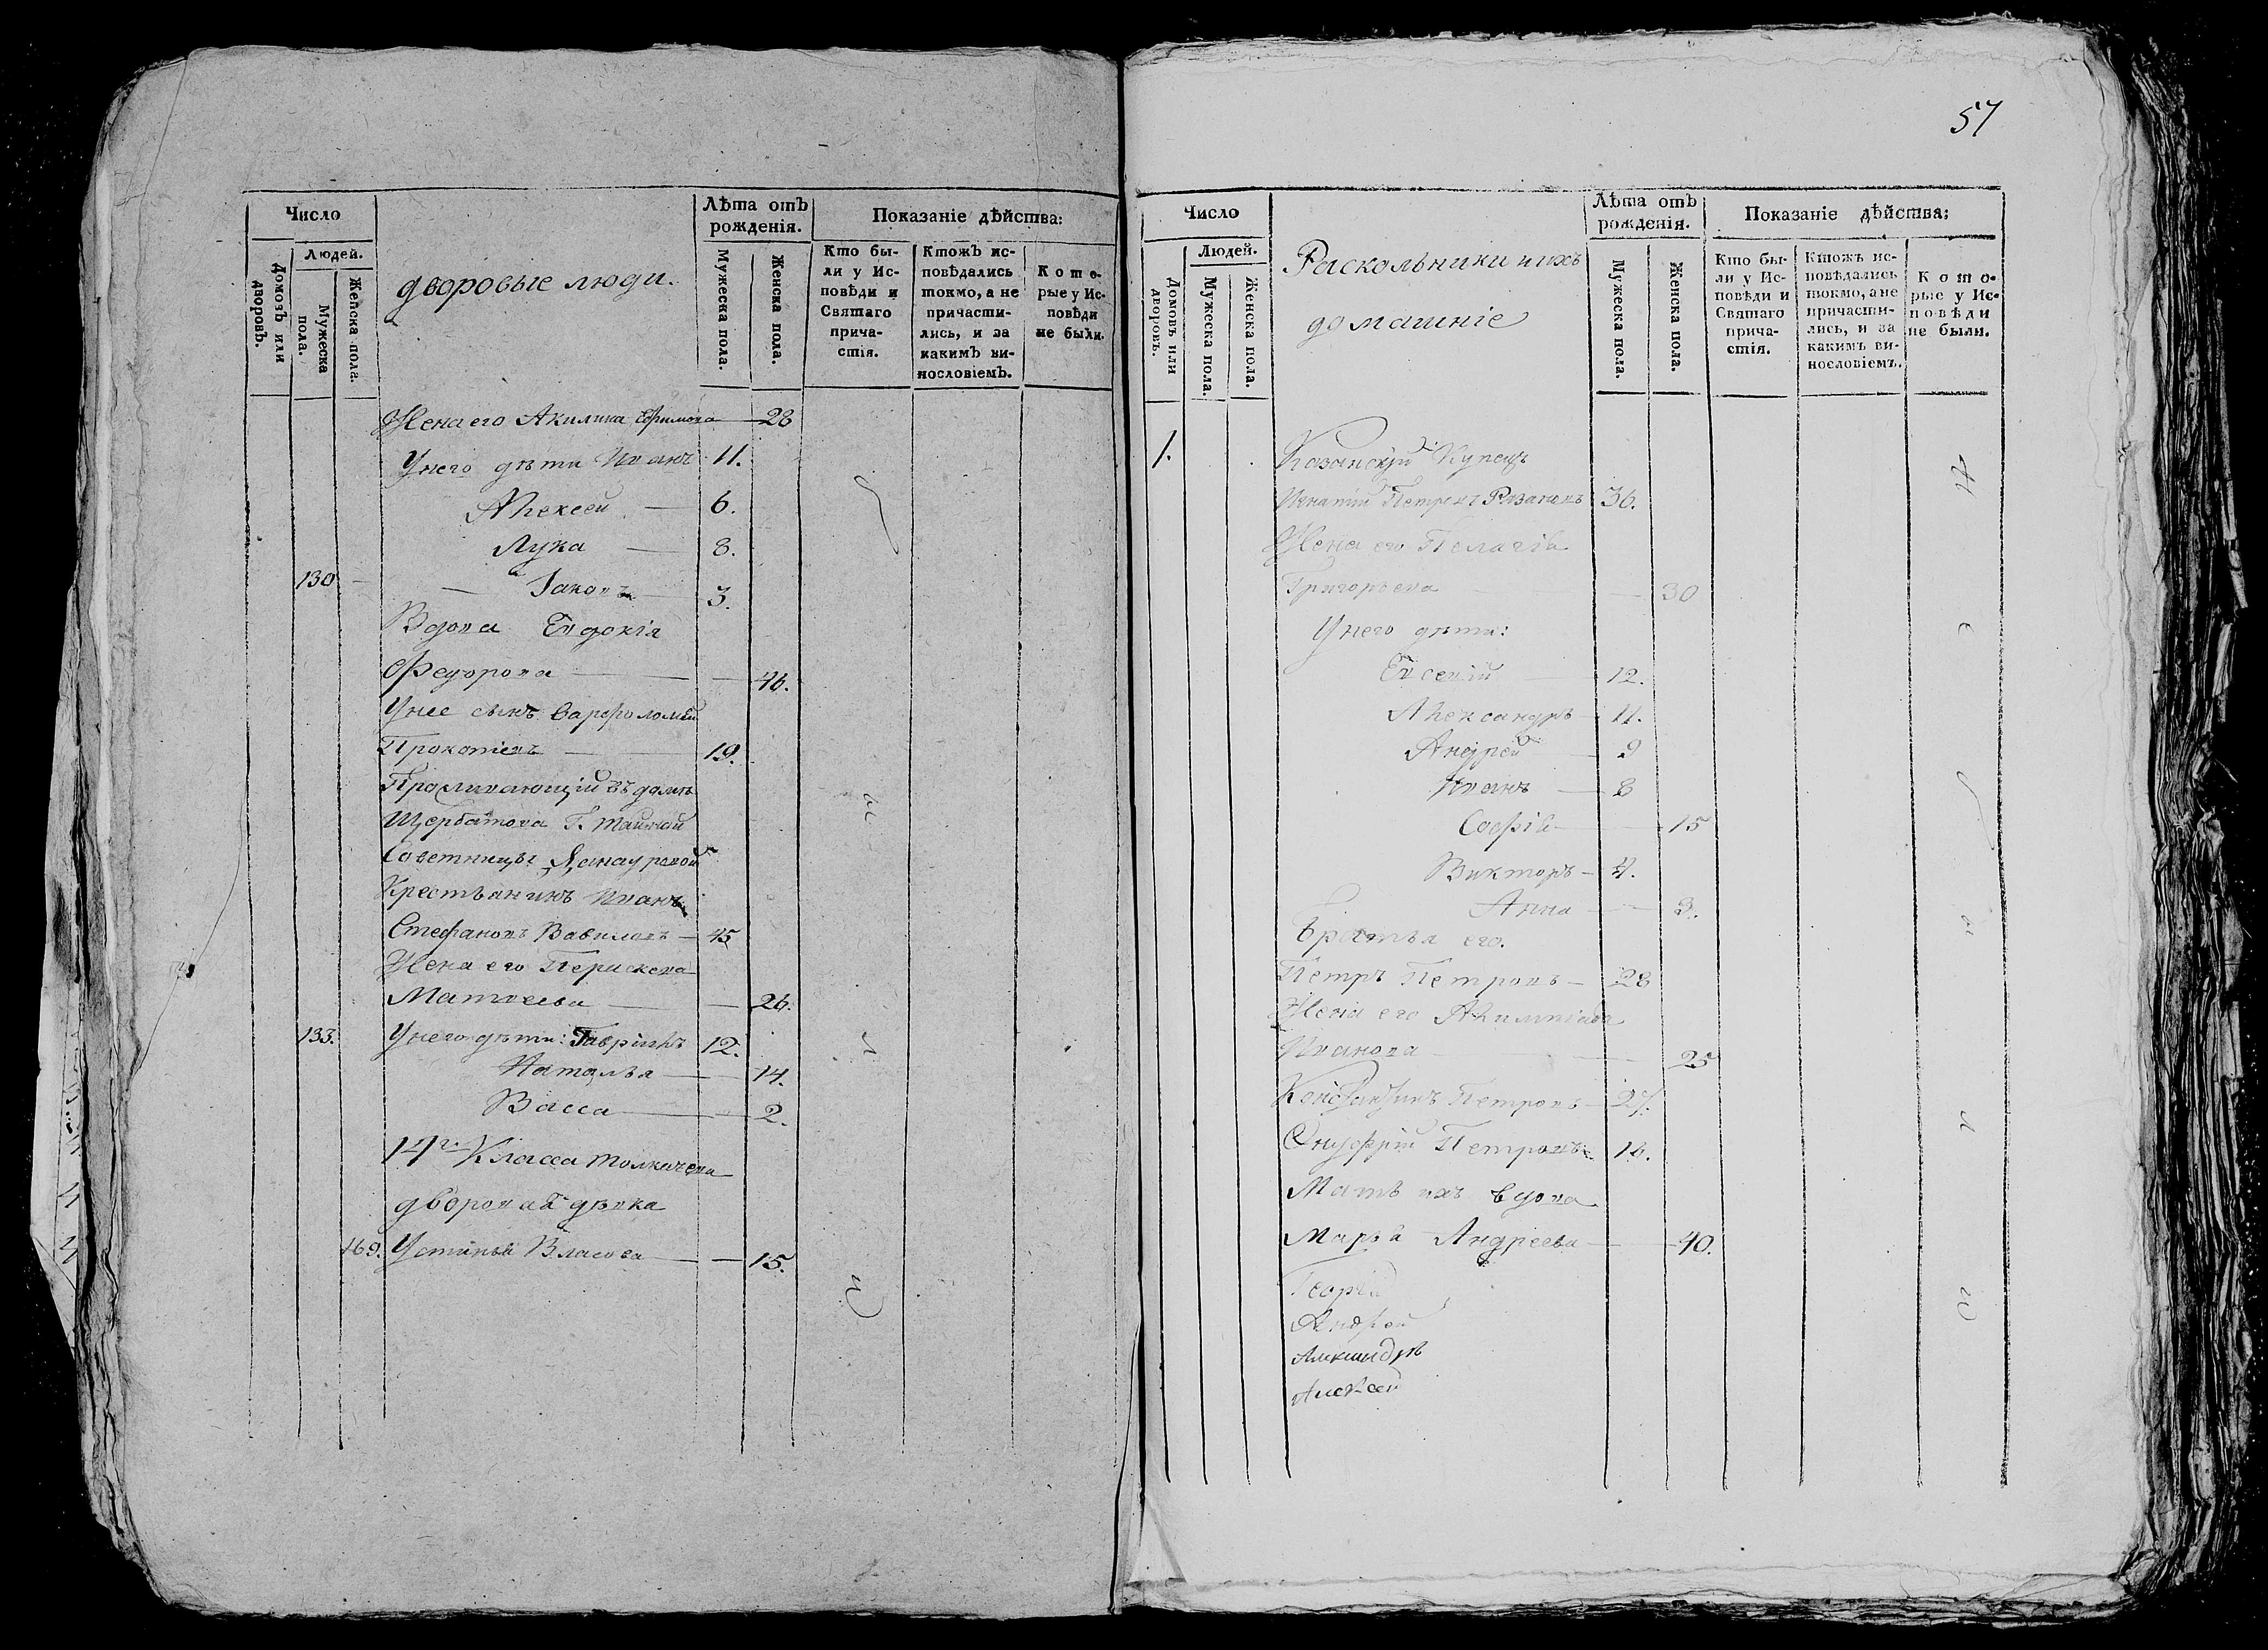 Число
Людей.
Домовъ или дворовъ.
Мужеска пола.
Женска пола.
дворовые люди.
Лѣта отъ рожденія.
Мужеска пола.
Женска пола.
Показаніе дѣйства:
Кто бы-
ли у Ис-
повѣди и
Святаго
прича-
стія.
Ктожъ ис-
повѣдались
токмо, а не
причасти-
лись, и за
какимъ ви-
нословіемъ.
Кото-
рые у Ис-
повѣди
не были.
Жена его Акилина Ефимова — 28
У него дѣти Иванъ 11.
Алексей — 6.
Лука — 8.
130 — Іаковъ — 3.
Вдова Евдокія
Федорова — 46.
У нее сынъ Варфоломей
Прокопіевъ — 19.
Проживающій въ домѣ
Щербатова Г. тайной
Советницы
Крестьянинъ Иванъ
Стефановъ Вавиловъ — 45
Жена его Параскева
Матвеева — 26.
133. У него дѣти: Гаврілъ 12.
Наталья — 14.
Васса — 2.
14г. Класса Толмачева
дворовая дѣвка
169. Устинья Власова — 15.
57
Число
Людей.
Домовъ или дворовъ.
Мужеска пола.
Женска пола.
Раскольники и ихъ
домашніе
Лѣта отъ рожденія.
Мужеска пола.
Женска пола.
Показаніе дѣйства:
Кто бы-
ли у Ис-
повѣди и
Святаго
прича-
стія.
Ктожъ ис-
повѣдались
токмо, а не
причасти-
лись, и за
какимъ ви-
нословіемъ.
Кото-
рые у Ис-
повѣди
не были.
1. Казанскій Купецъ
Игнатій Петровъ Рязановъ 36.
Жена его Пелагія
Григорьева — 30
У него дѣти:
Евсевій — 12.
Александръ — 11.
Андрей — 9
Иванъ — 8
Софія — 15
Викторъ — 4.
Анна — 3.
Братья его.
Петръ Петровъ — 28
Жена его Алимпіада
Иванова — 25
Константинъ Петровъ — 27.
Онуфрій Петровъ — 16.
Мать ихъ вдова
Марья Андреева — 40.
Георгій
Андрей
Александръ
Алексей